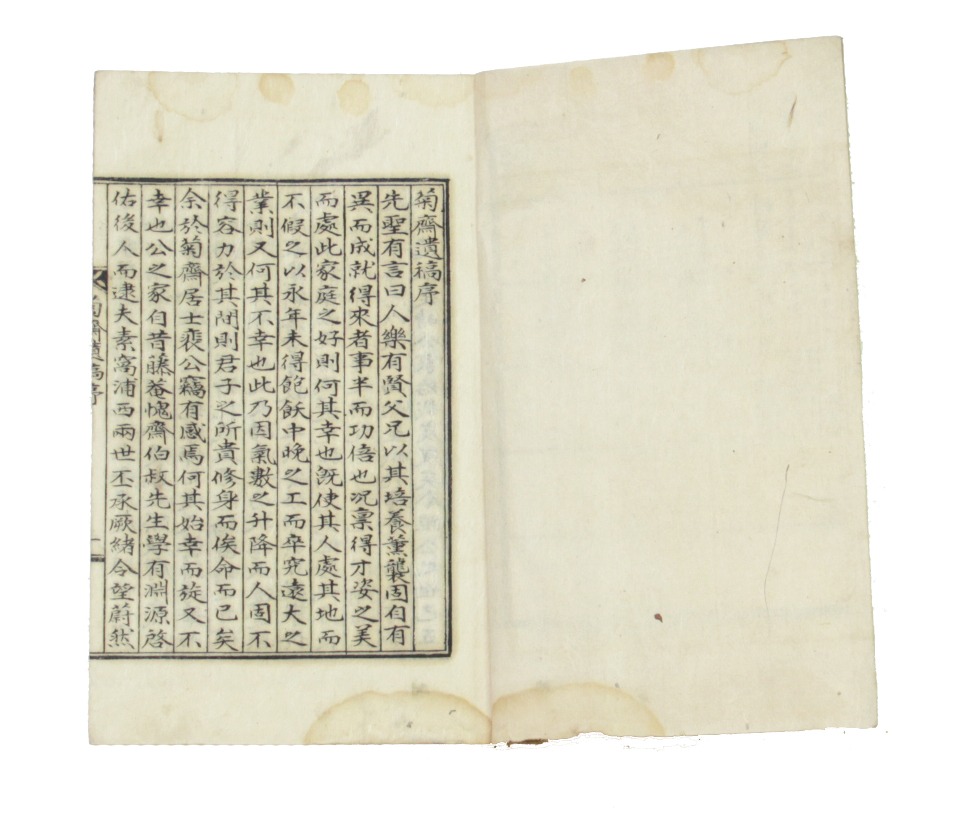 菊齋遺稿序
先聖有言曰人樂有賢父兄以其培養薰襲固自有
異而成就得來者事半而功倍也况稟得才姿之美
而處此家庭之好則何其幸也旣使其人處其地而
不假之以永年未得飽飫中晩之工而卒究遠大之
業則又何其不幸也此乃因氣數之升降而人固不
得容力於其間則君子之所貴修身而俟命而已矣
余於菊齋居士裵公竊有感焉何其始幸而旋又不
幸也公之家自昔藤菴愧齋伯叔先生學有淵源啓
佑後人而逮夫素窩浦西兩世丕承厥緖令望蔚然
菊齋遺稿序